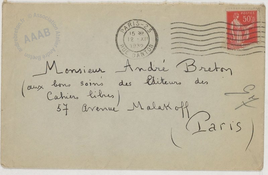 AAAB
PARIS
50c
Monsieur André Breton
(aux bons soins des Editeurs des
Cahiers libres)
57 avenue Malakoff
(Paris)